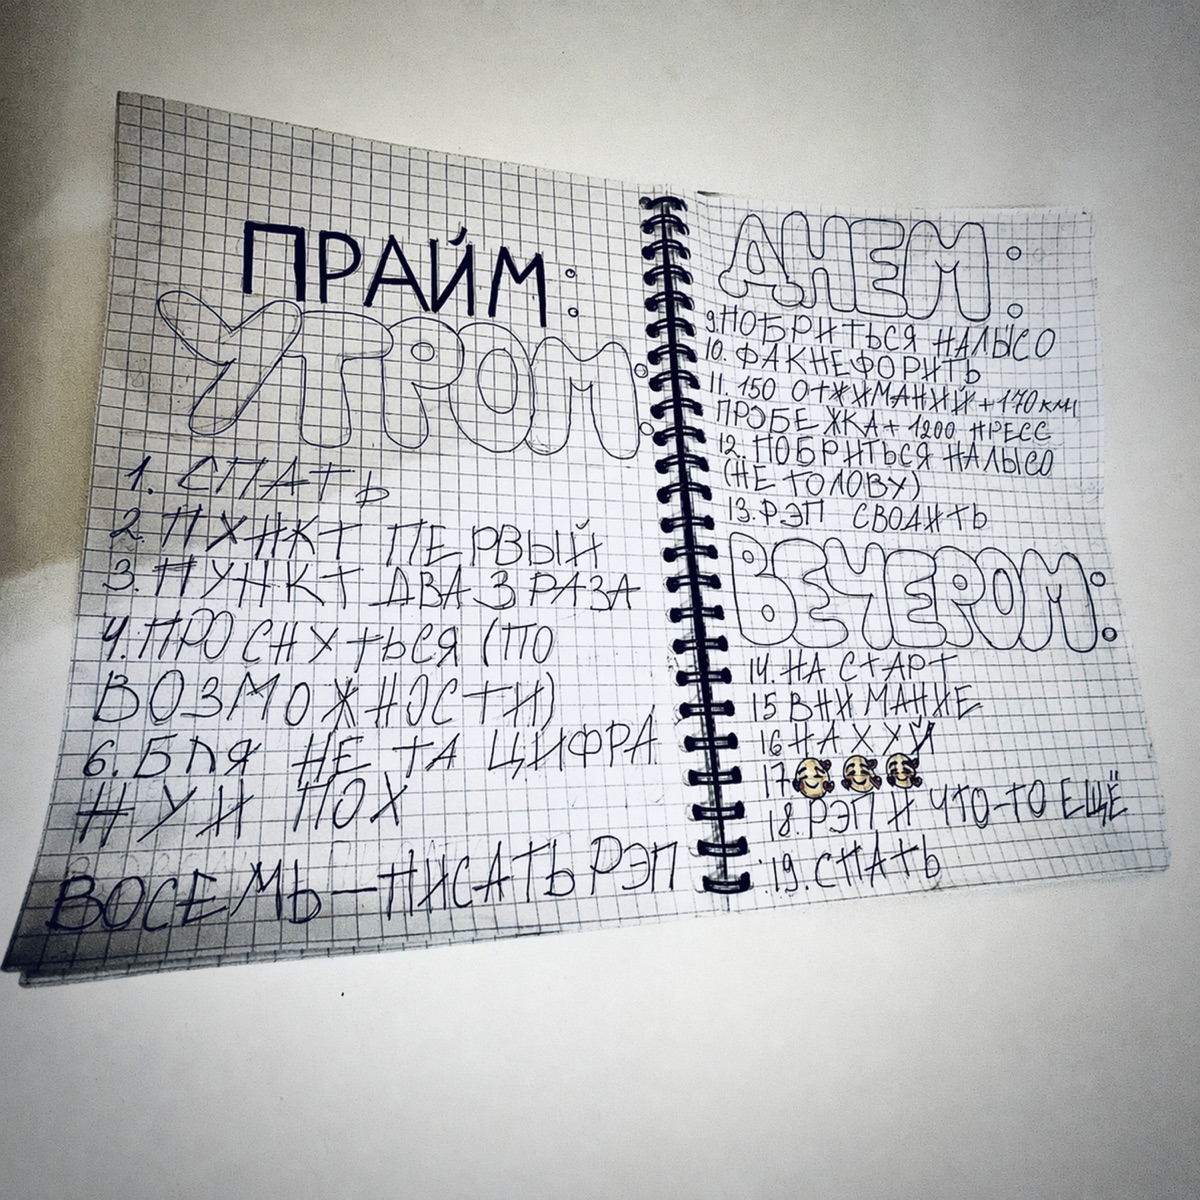 ПРАЙМ:
УТРОМ:
1. СПАТЬ
2. ПУНКТ ПЕРВЫЙ
3. ПУНКТ ДВА 3 РАЗА
4. ПРОСНУТЬСЯ (ПО
ВОЗМОЖНОСТИ)
6. БЛЯ НЕ ТА ЦИФРА
НУ И ПОХ
ВОСЕМЬ—ПИСАТЬ РЭП
ДНЕМ:
9. ПОБРИТЬСЯ НАЛЫСО
10. ФАКНЕФОРИТЬ
11. 150 ОТЖИМАНИЙ + 170КМ
ПРОБЕЖКА + 1200 ПРЕСС
12. ПОБРИТЬСЯ НАЛЫСО
(НЕ ГОЛОВУ)
13. РЭП СВОДИТЬ
ВЕЧЕРОМ:
14. НА СТАРТ
15 ВНИМАНИЕ
16 НАХУУЙ
17 🥰🥰🥰
18. РЭП И ЧТО-ТО ЕЩЁ
19. СПАТЬ